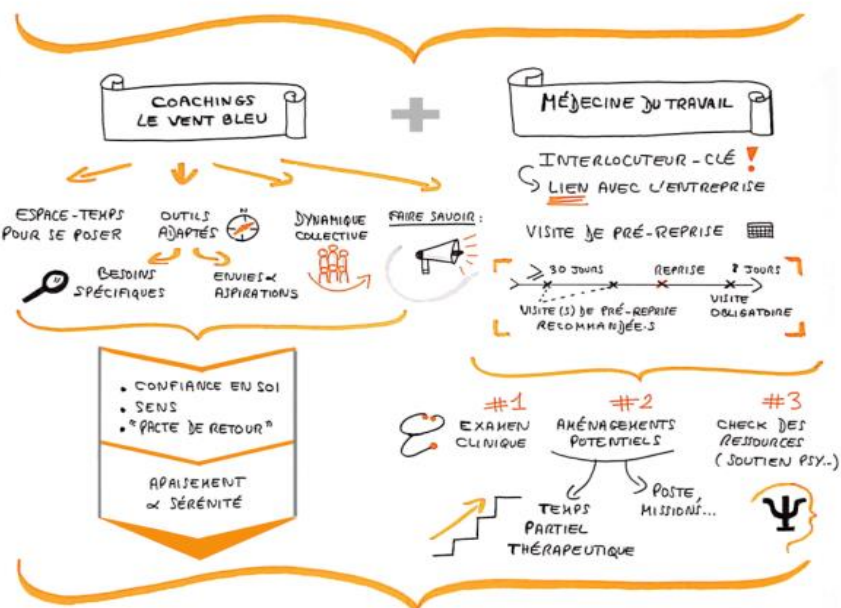 COACHINGS
LE VENT BLEU
ESPACE-TEMPS
POUR SE POSER
OUTILS
ADAPTÉS
N
DYNAMIQUE
COLLECTIVE
FAIRE SAVOIR :
BESOINS
SPÉCIFIQUES
ENVIES &
ASPIRATIONS
• CONFIANCE EN SOI
• SENS
• "PACTE DE RETOUR"
APAISEMENT
& SÉRÉNITÉ
+
MÉDECINE DU TRAVAIL
INTERLOCUTEUR-CLÉ !
LIEN AVEC L'ENTREPRISE
VISITE DE PRÉ-REPRISE
≥ 30 JOURS
REPRISE
8 JOURS
VISITE(S) DE PRÉ-REPRISE
RECOMMANDÉE.S
VISITE
OBLIGATOIRE
#1
EXAMEN
CLINIQUE
#2
AMÉNAGEMENTS
POTENTIELS
TEMPS
PARTIEL
THÉRAPEUTIQUE
POSTE,
MISSIONS...
#3
CHECK DES
RESSOURCES
(SOUTIEN PSY..)
Ψ